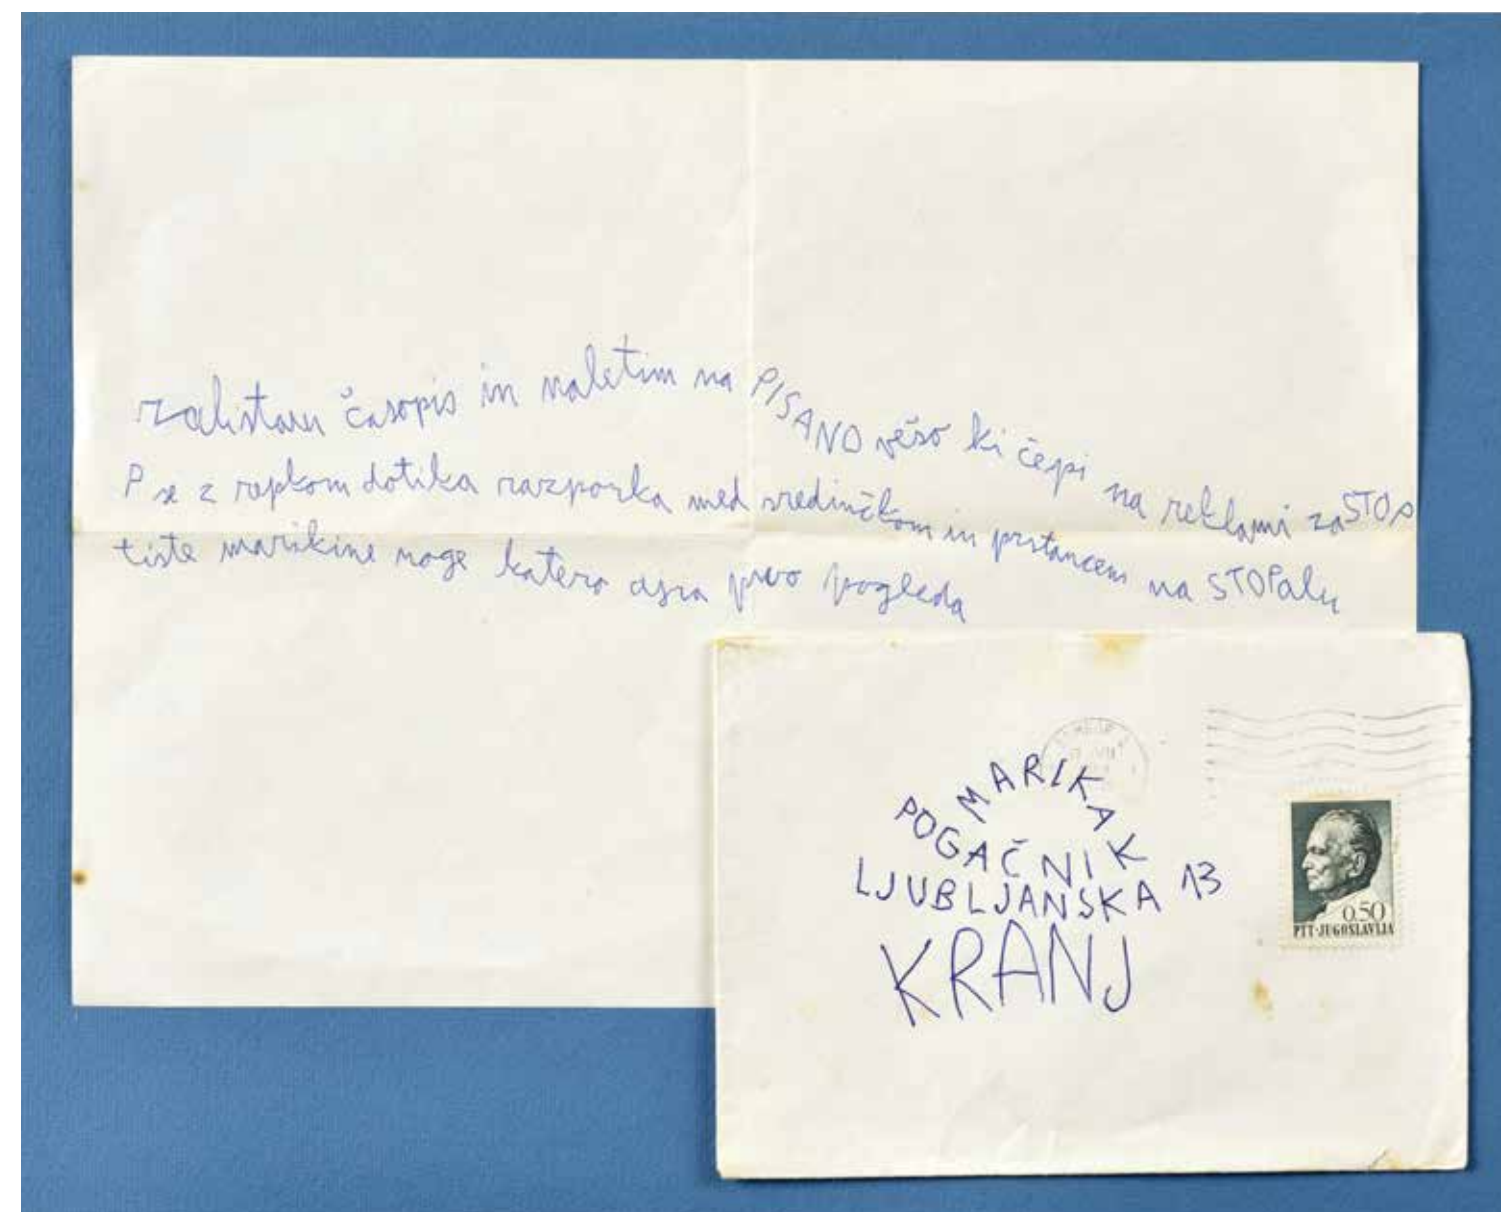 zalistam časopis in naletim na PISANO vešo ki čepi na reklami za STOP
P se z repkom dotika razporka med sredinčkom in prstancem na STOPalu
tiste marikine noge katero ajra prvo pogleda
MARIKA
POGAČNIK
LJUBLJANSKA 13
KRANJ
0.50
PTT-JUGOSLAVIJA